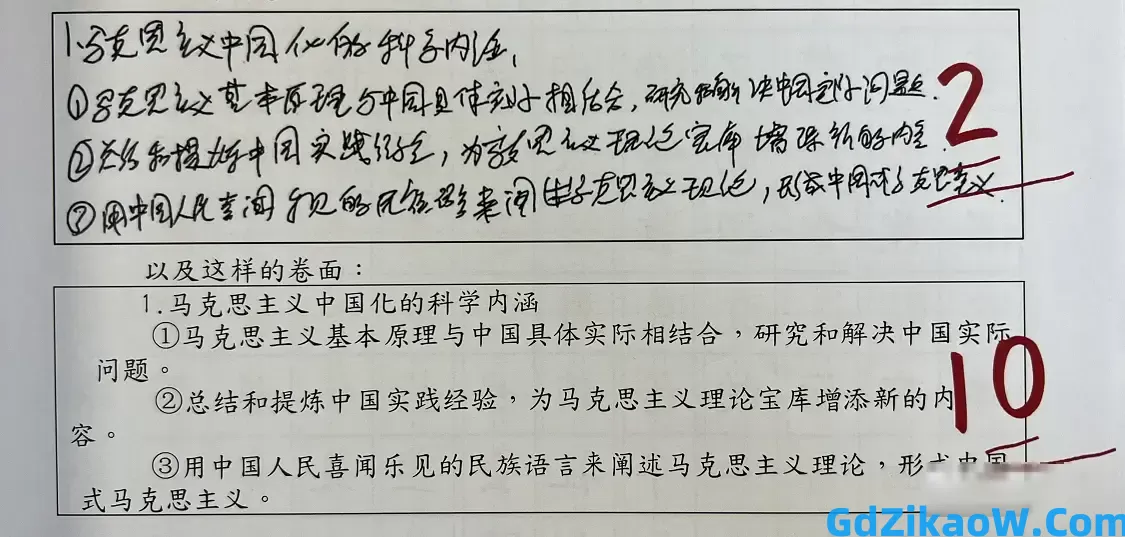 1.马克思主义中国化的科学内涵,
①马克思主义基本原理与中国具体实际相结合,研究和解决中国实际问题.
②总结和提炼中国实践经验,为马克思主义理论宝库增添新的内容.
2
③用中国人民喜闻乐见的民族语言来阐述马克思主义理论,形成中国式马克思主义.
以及这样的卷面：
1.马克思主义中国化的科学内涵
①马克思主义基本原理与中国具体实际相结合，研究和解决中国实际
问题。
10
②总结和提炼中国实践经验，为马克思主义理论宝库增添新的内
容。
③用中国人民喜闻乐见的民族语言来阐述马克思主义理论，形成中国
式马克思主义。
GdZikaoW.Com